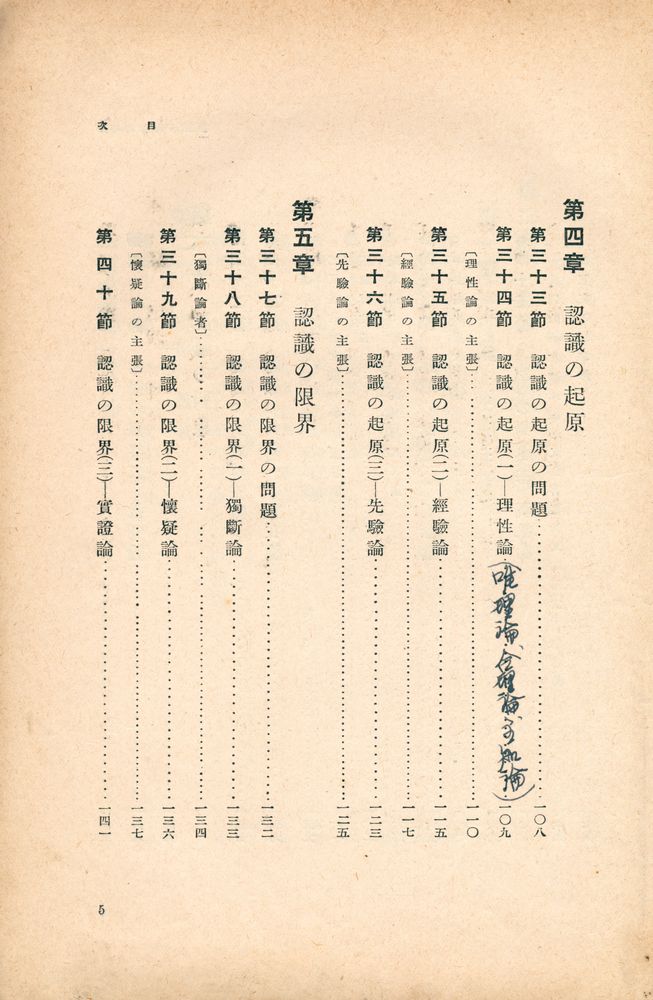 目次
第四章 認識の起原
第三十三節 認識の起原の問題……一〇八
第三十四節 認識の起原(一)—理性論……一〇九
(唯理論、合理論、主知論)
〔理性論の主張〕……一一〇
第三十五節 認識の起原(二)—經驗論……一一五
〔經驗論の主張〕……一一七
第三十六節 認識の起原(三)—先驗論……一二三
〔先驗論の主張〕……一二五
第五章 認識の限界
第三十七節 認識の限界の問題……一三二
第三十八節 認識の限界(一)—獨斷論……一三三
〔獨斷論者〕……一三四
第三十九節 認識の限界(二)—懷疑論……一三六
〔懷疑論の主張〕……一三七
第四十節 認識の限界(三)—實證論……一四一
5